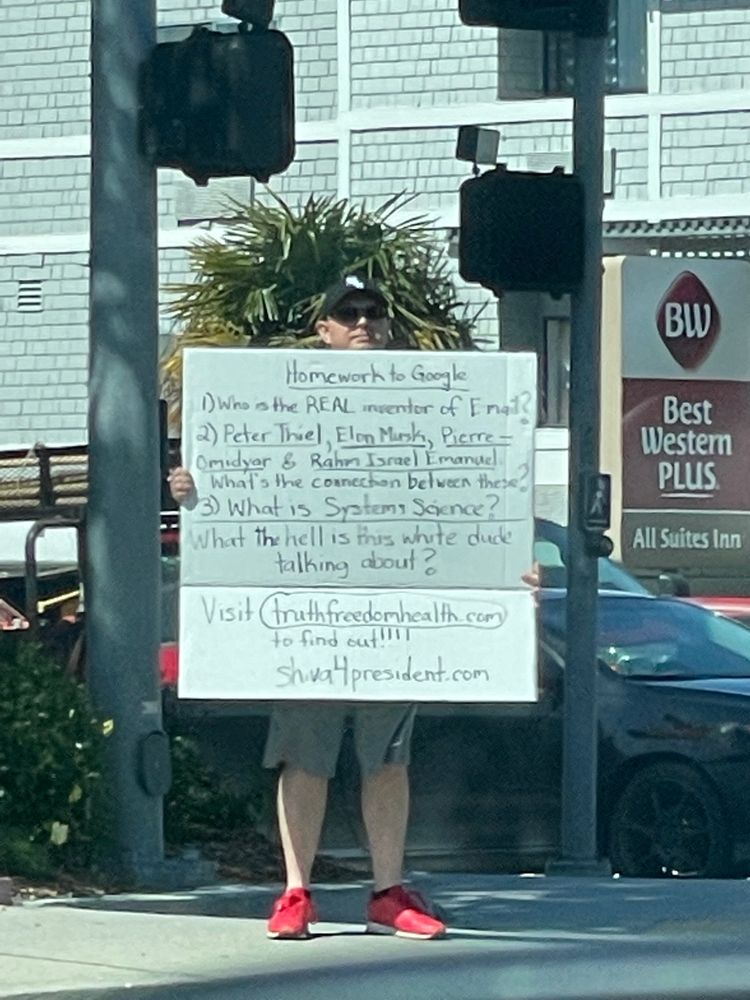 Homework to Google
1) Who is the REAL inventor of Email?
2) Peter Thiel, Elon Musk, Pierre -
Omidyar & Rahm Israel Emanuel.
What's the connection between these?
3) What is Systems Science?
What the hell is this white dude
talking about?
Visit truthfreedomhealth.com
to find out!!!!
shiva4president.com
BW
Best
Western
PLUS
All Suites Inn